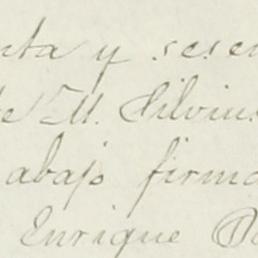 nta y sesen
de M. Silvius
abajo firma
Enrique